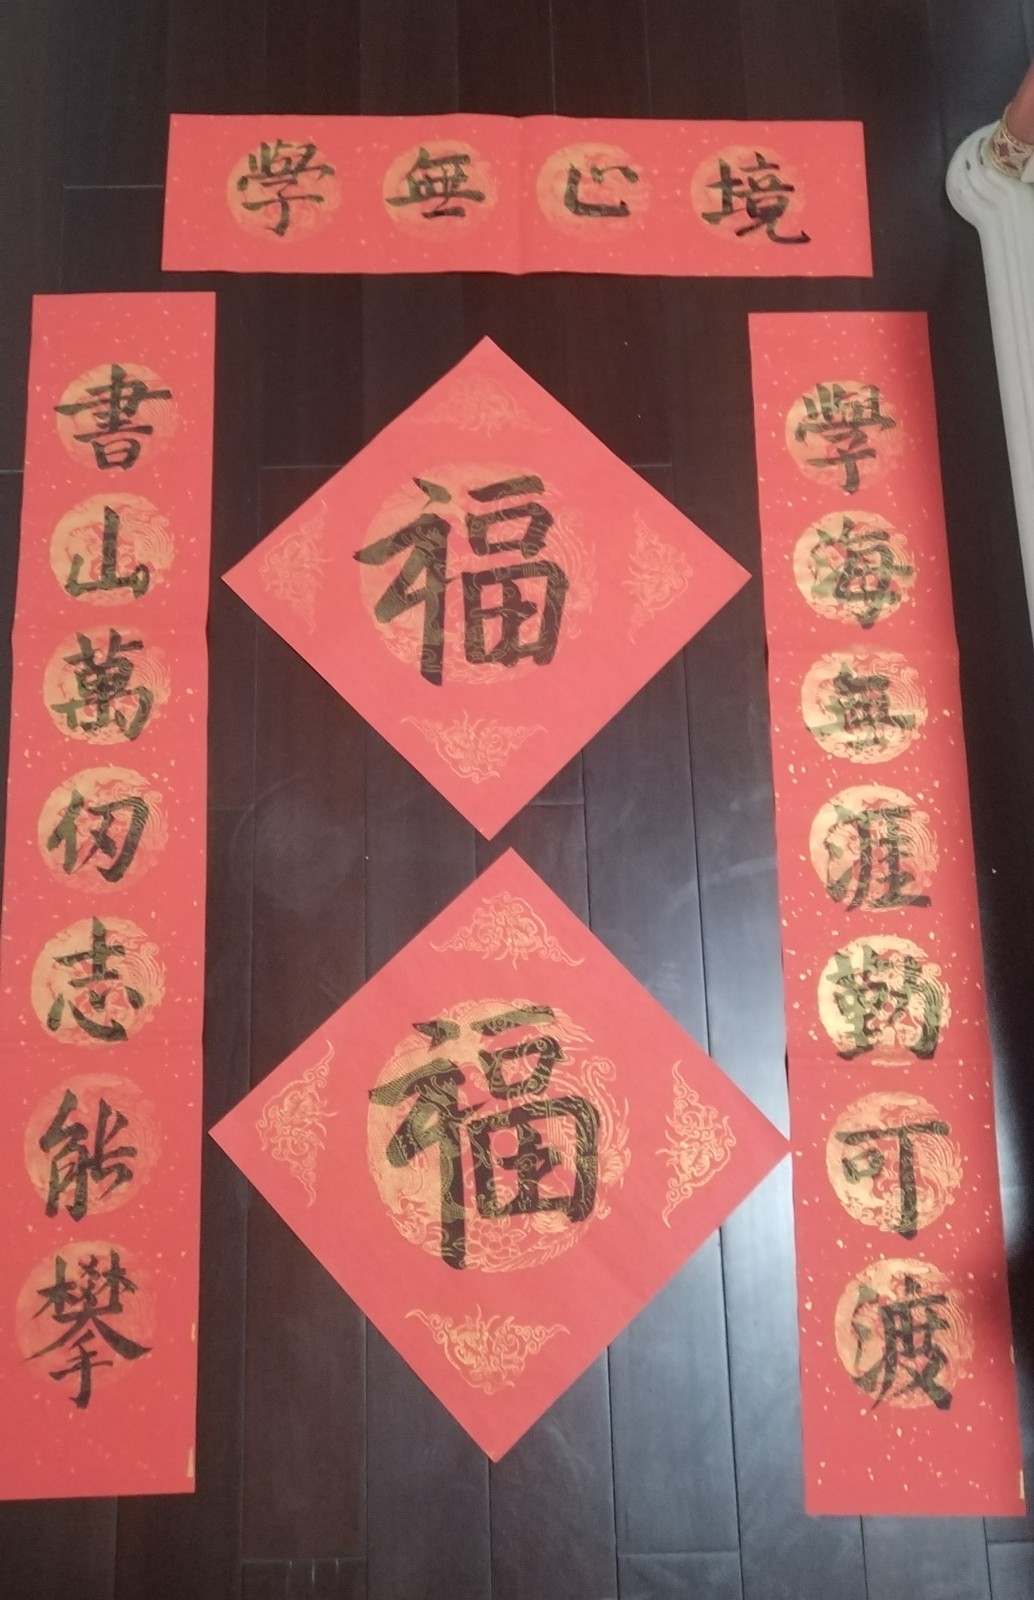 學無止境
書山萬仞志能攀
學海無涯勤可渡
福
福